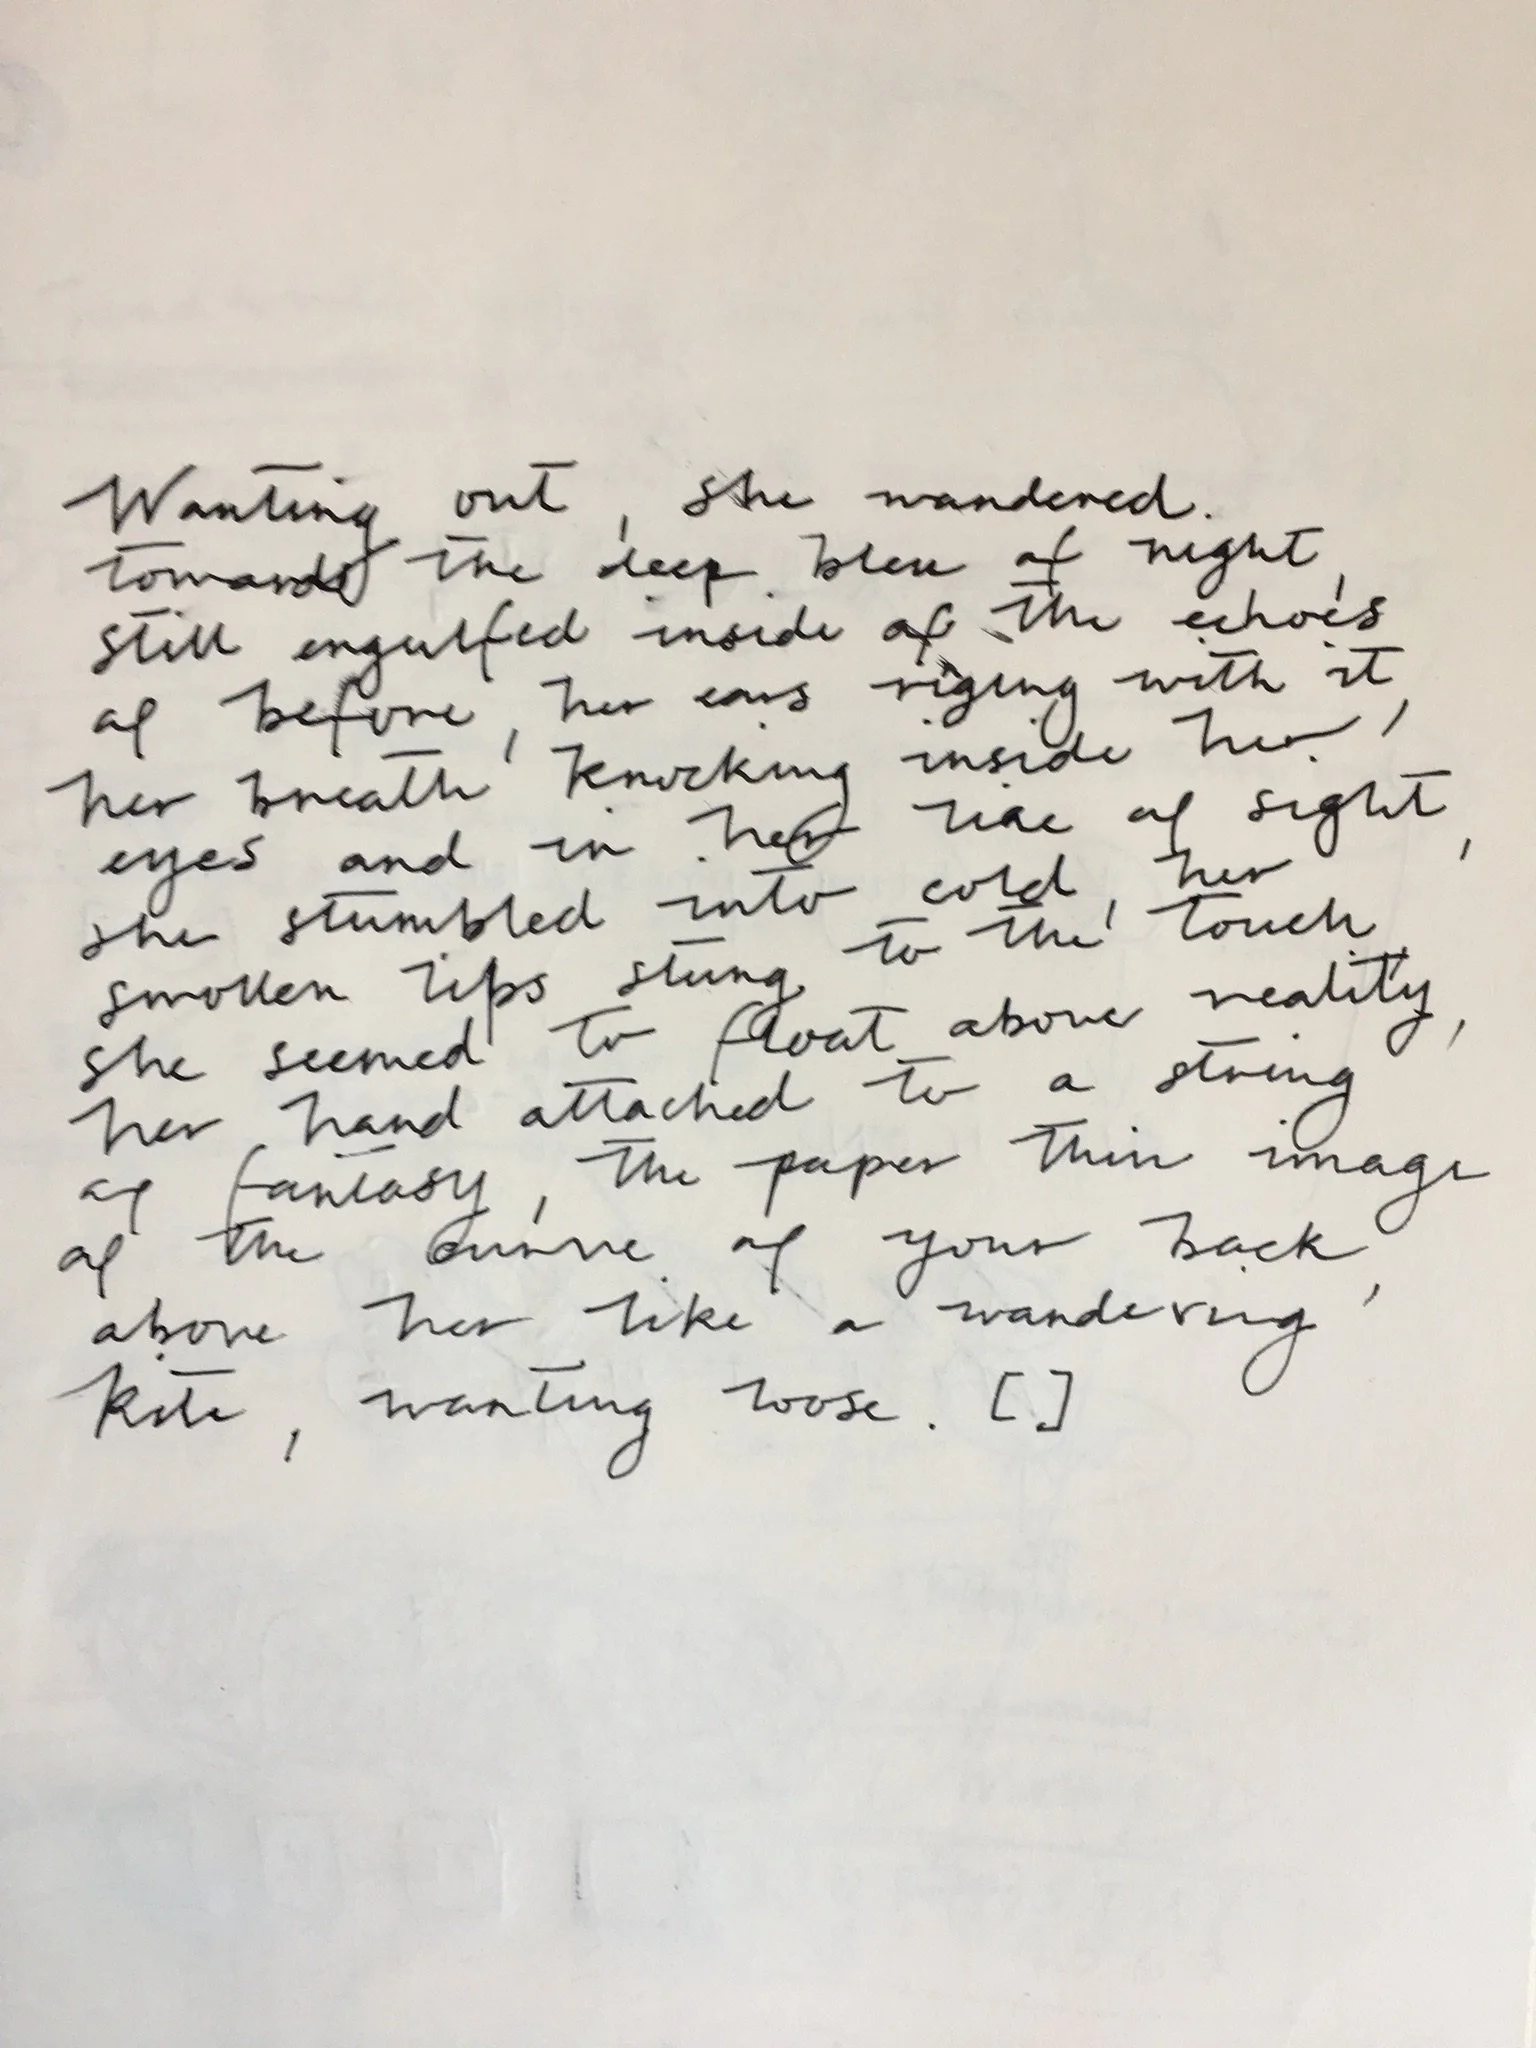 Wanting out, she wandered.
towards the deep bleu of night,
still engulfed inside of the echoes
of before, her ears riging with it,
her breath knocking inside her
eyes and in her line of sight,
she stumbled into cold, her
swollen lips stung to the touch
she seemed to float above reality,
her hand attached to a string
of fantasy, the paper thin image
of the curve of your back,
above her like a wandering
kite, wanting loose. []